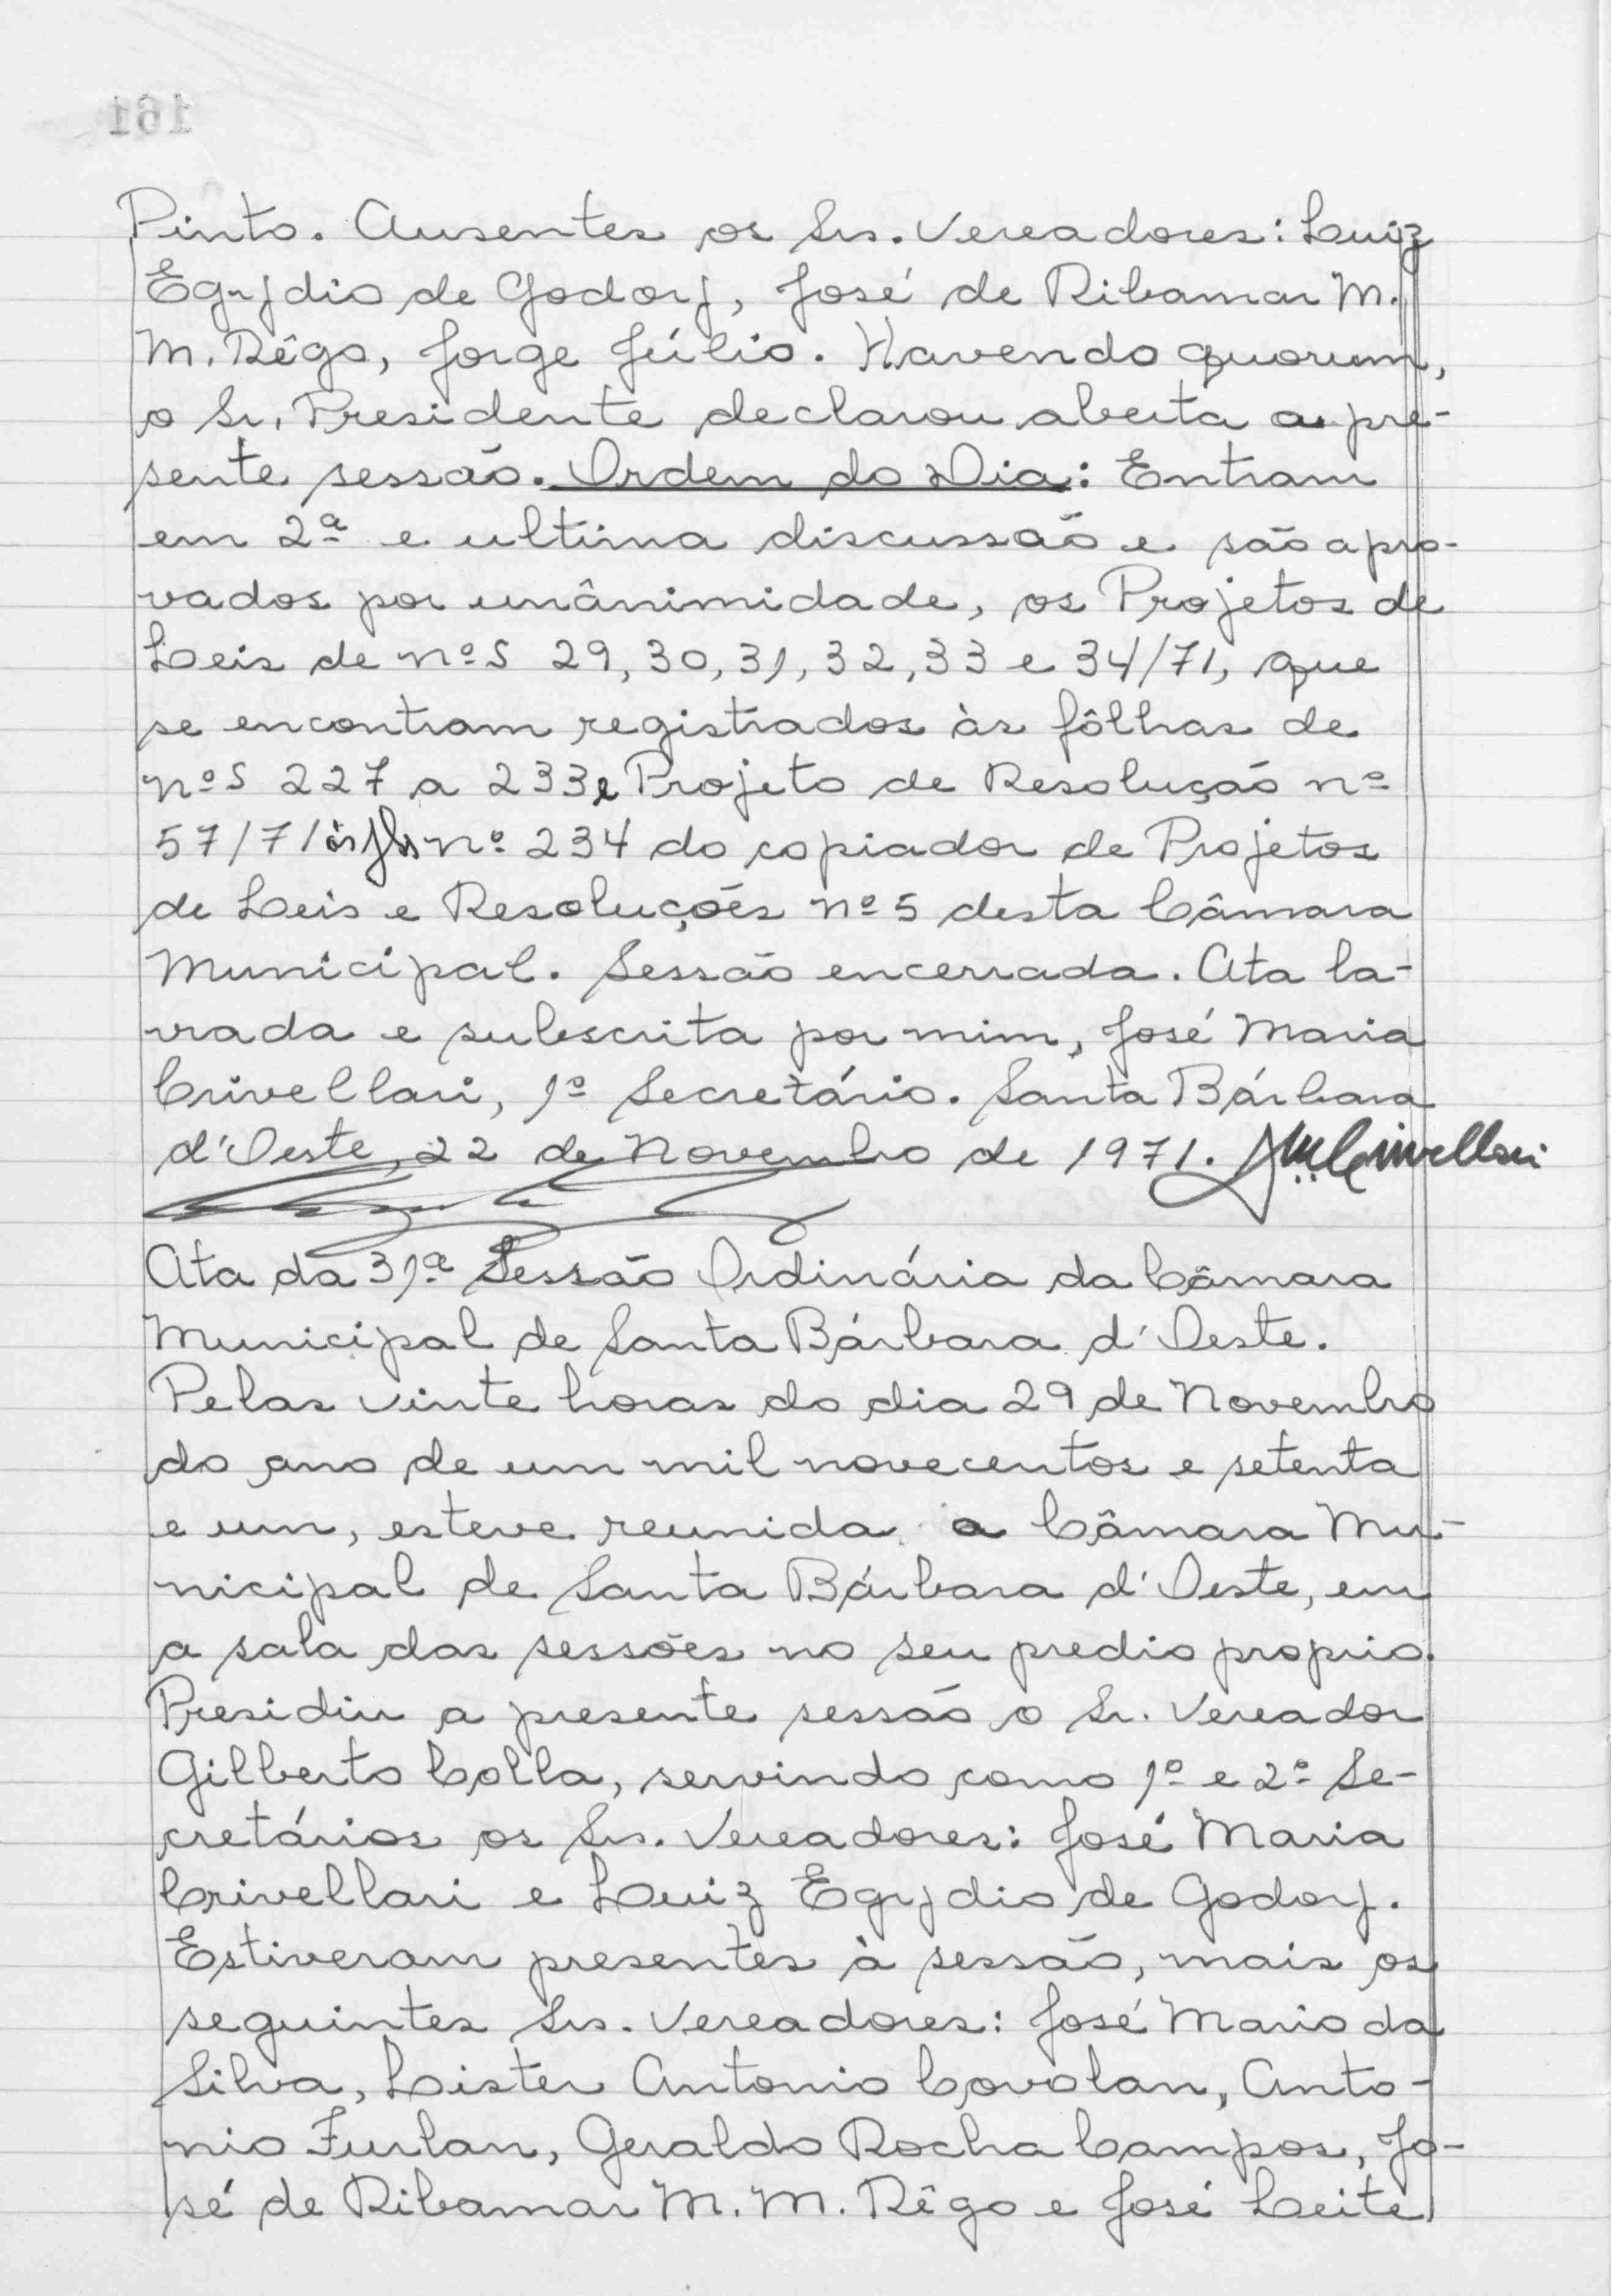 161
Pinto. Ausentes os Srs. Vereadores: Luiz
Egydio de Godoy, José de Ribamar M.
M. Rêgo, Jorge Júlio. Havendo quorum,
o Sr. Presidente declarou aberta a pre-
sente sessão. Ordem do Dia: Entram
em 2ª e ultima discussão e são apro-
vados por unânimidade, os Projetos de
Leis de nºs 29, 30, 31, 32, 33 e 34/71, que
se encontram registrados às fôlhas de
nºs 227 a 233 e Projeto de Resolução nº
57/71 às fls nº 234 do copiador de Projetos
de Leis e Resoluções nº 5 desta Câmara
Municipal. Sessão encerrada. Ata la-
vrada e subscrita por mim, José Maria
Crivellari, 1º Secretário. Santa Bárbara
d'Oeste, 22 de Novembro de 1971. JMCrivellari
Ata da 31ª Sessão Ordinária da Câmara
Municipal de Santa Bárbara d'Oeste.
Pelas vinte horas do dia 29 de Novembro
do ano de um mil novecentos e setenta
e um, esteve reunida a Câmara Mu-
nicipal de Santa Bárbara d'Oeste, em
a sala das sessões no seu predio proprio.
Presidiu a presente sessão o Sr. Vereador
Gilberto Colla, servindo como 1º e 2º Se-
cretários os Srs. Vereadores: José Maria
Crivellari e Luiz Egydio de Godoy.
Estiveram presentes à sessão, mais os
seguintes Srs. Vereadores: José Mario da
Silva, Lister Antonio Covolan, Anto-
nio Furlan, Geraldo Rocha Campos, Jo-
sé de Ribamar M. M. Rêgo e José Leite